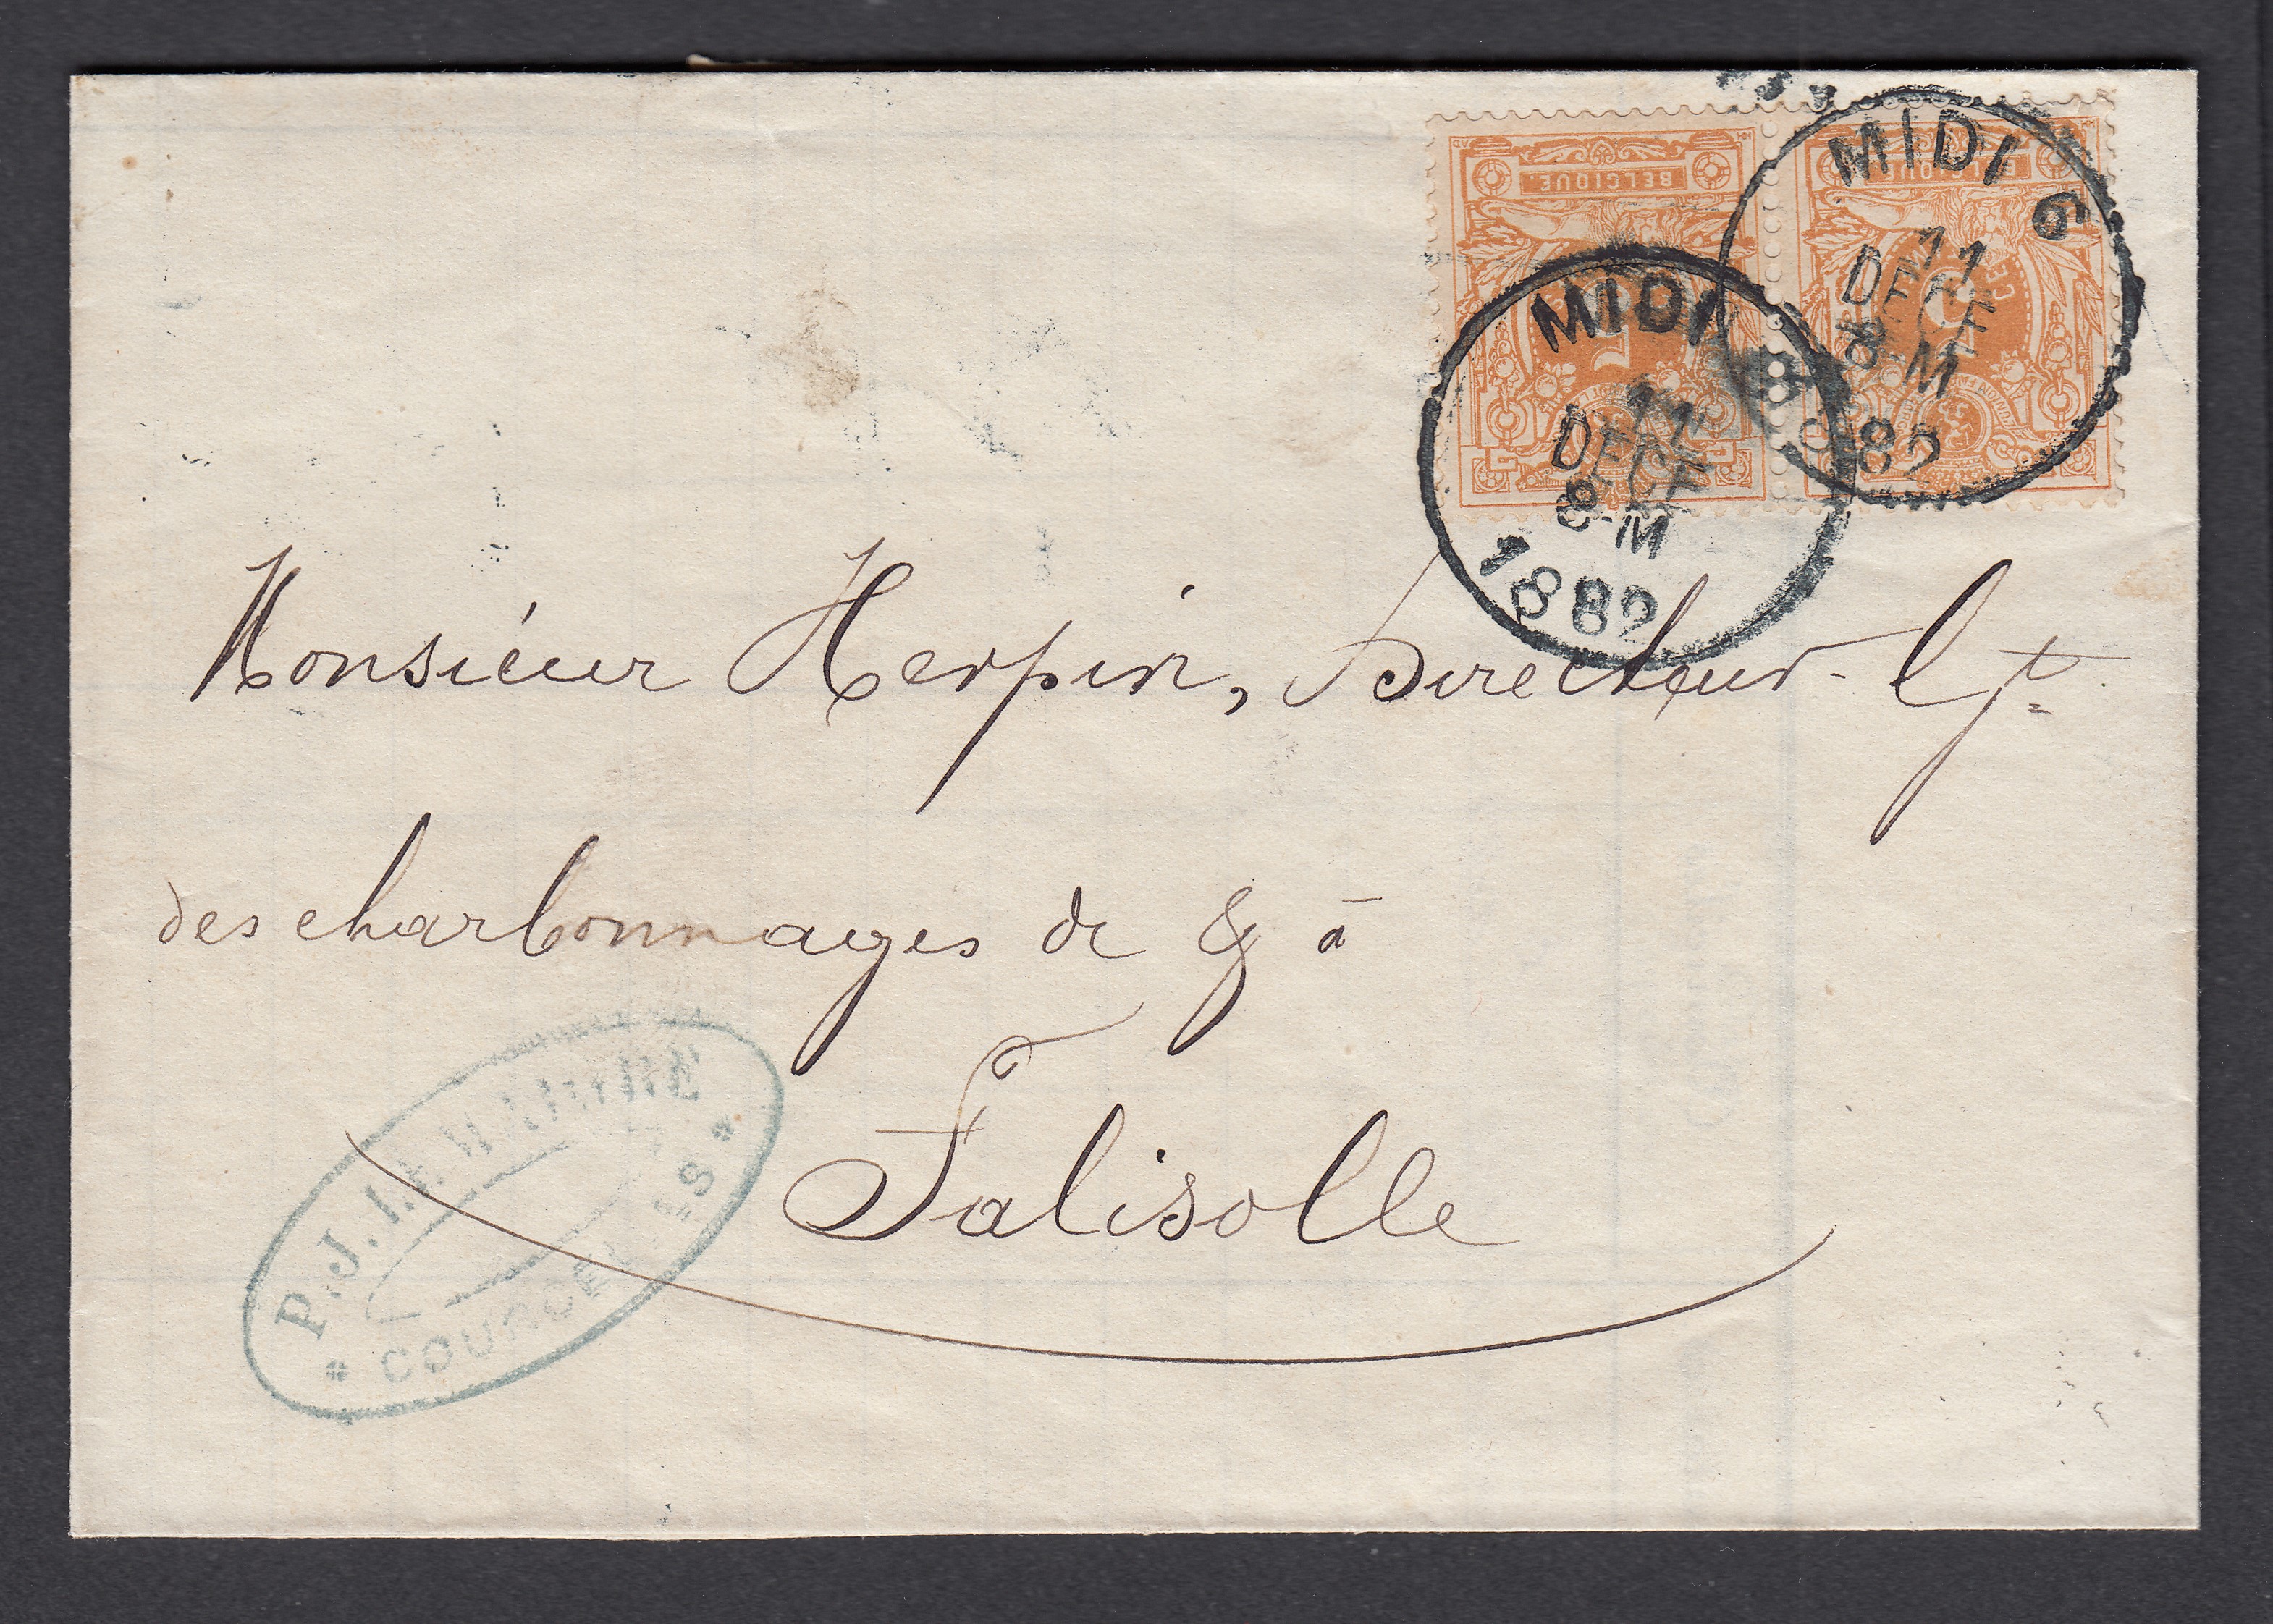 BELGIQUE.
BELGIQUE.
MIDI 6
11
DECE
8-M
1882
MIDI 6
11
DECE
8-M
1882
Monsieur Herpin, Directeur-Gt
des charbonnages de & à
Falisolle
P.J. LEWAIDRE
* COURCELLES *